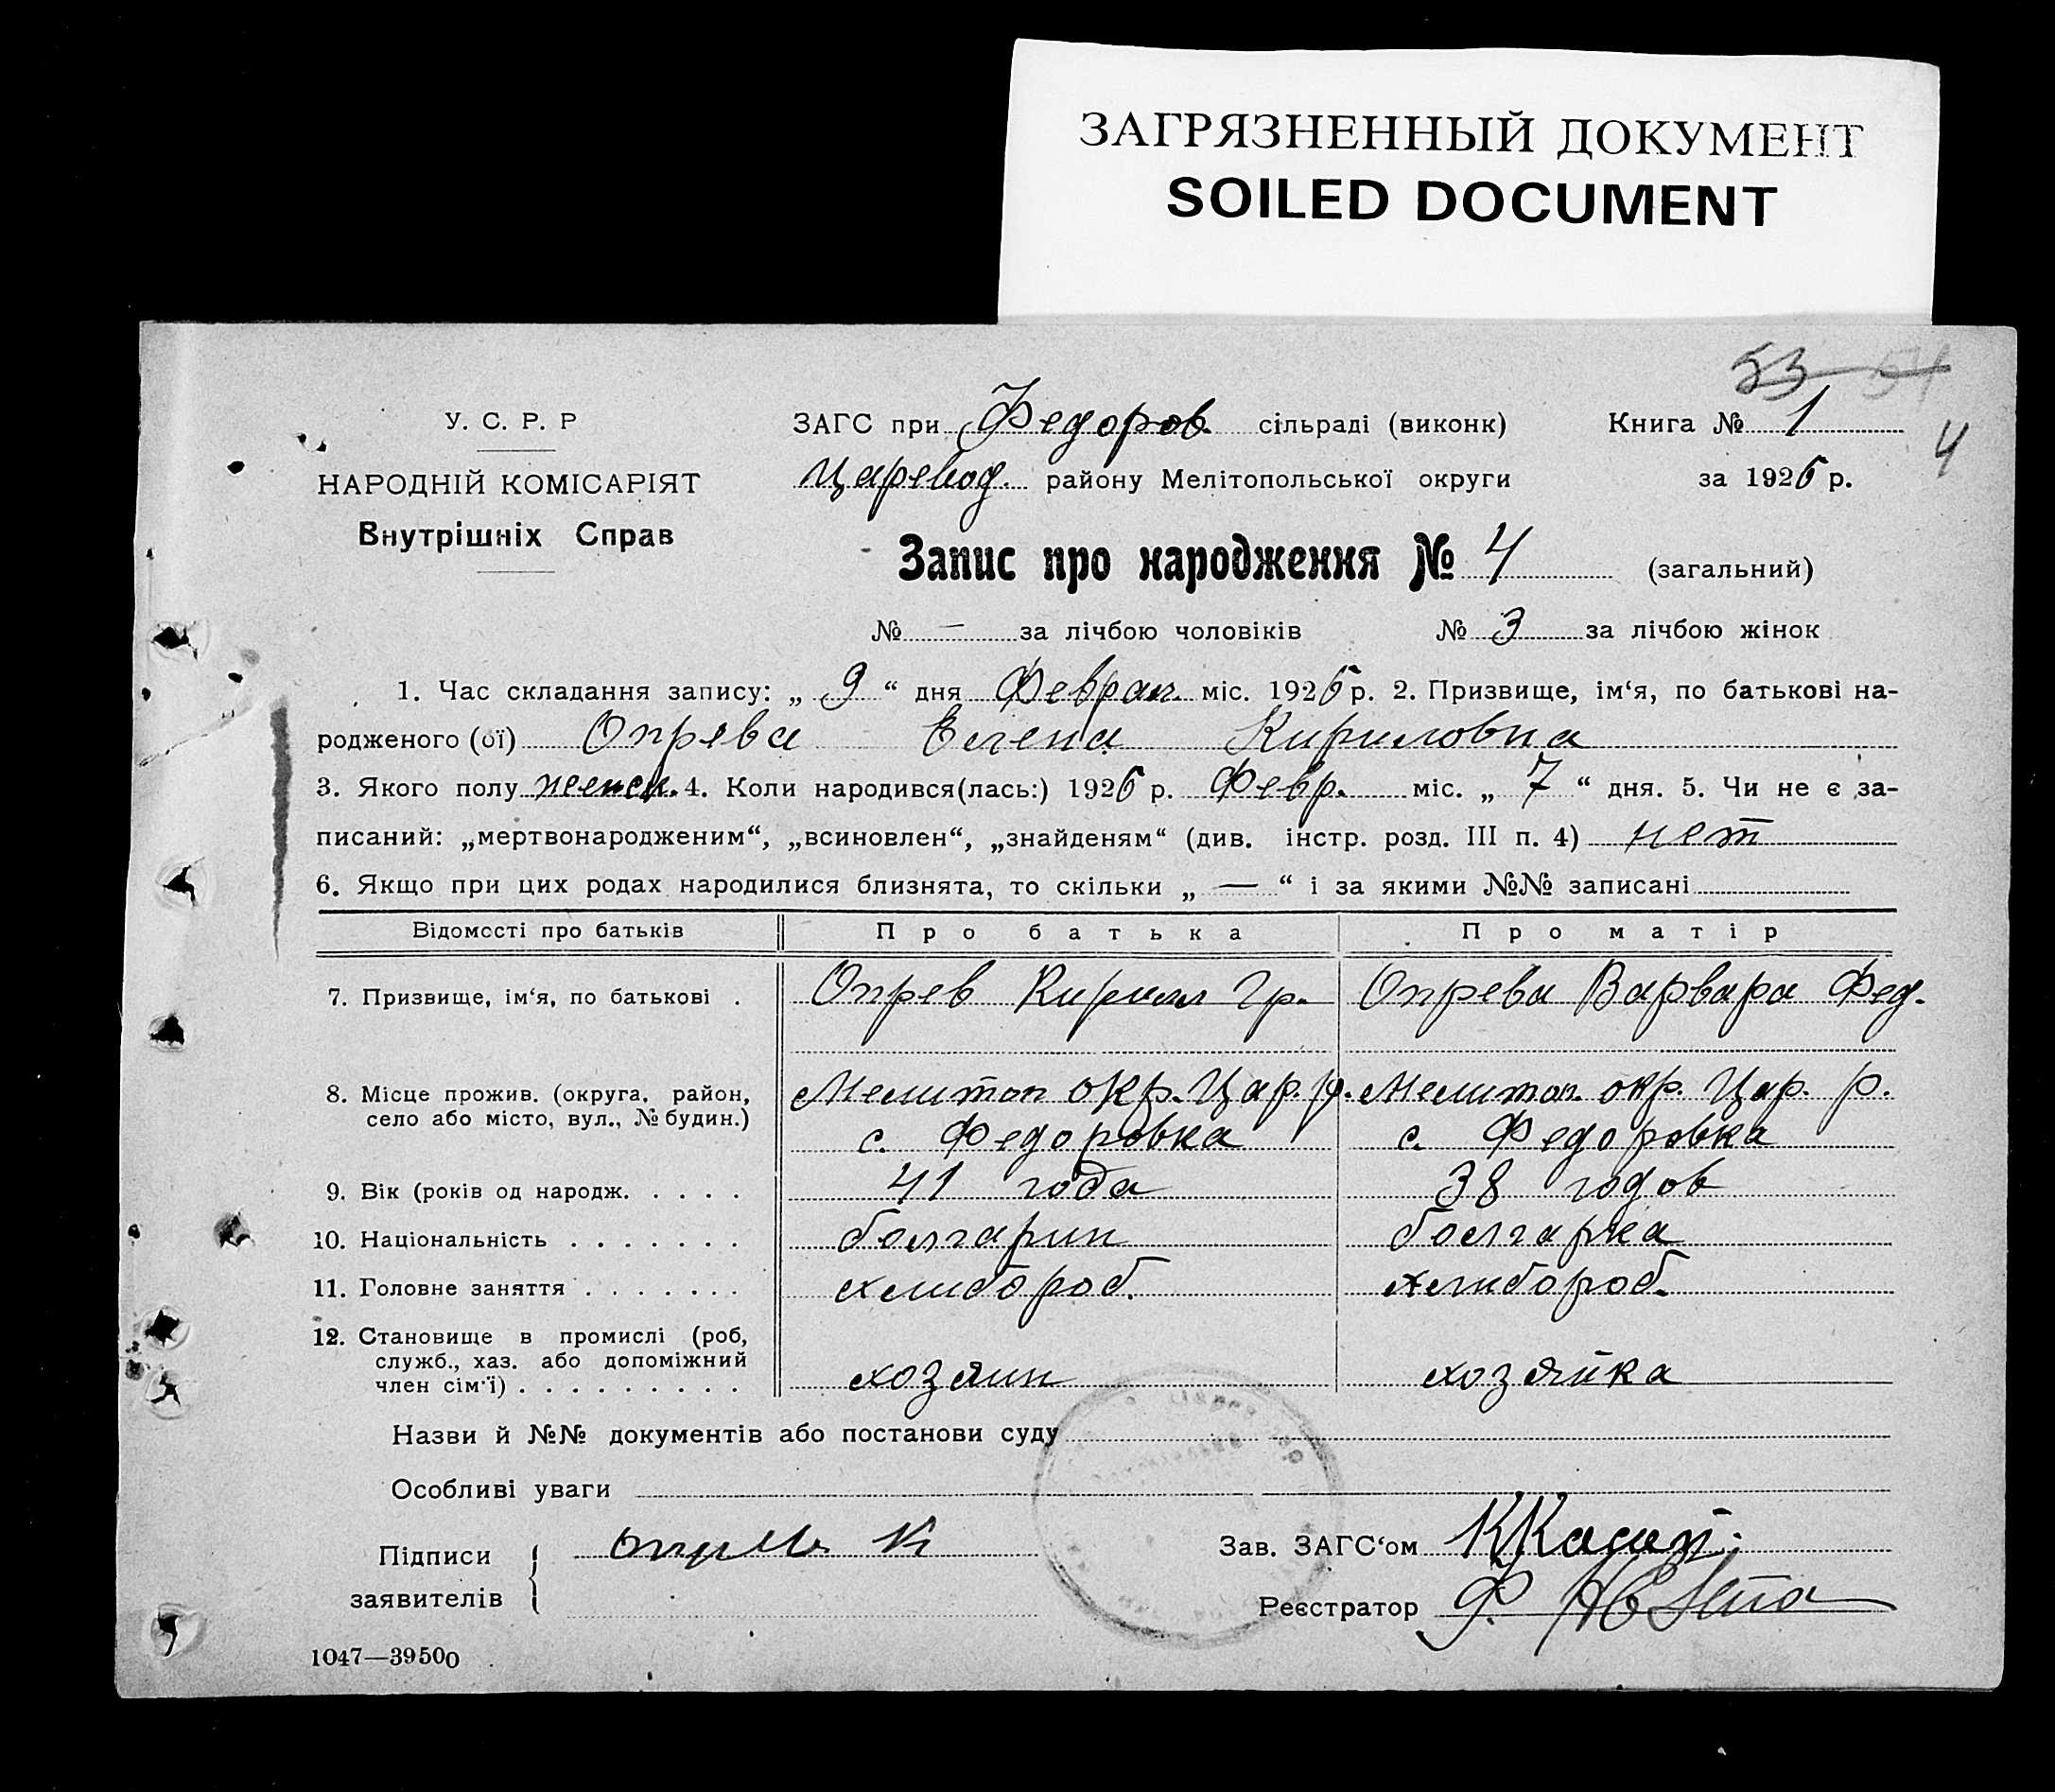 ЗАГРЯЗНЕННЫЙ ДОКУМЕНТ
SOILED DOCUMENT
53 51
У. С. Р. Р
НАРОДНІЙ КОМІСАРІЯТ
Внутрішніх Справ
ЗАГС при Федоров. сільраді (виконк) Книга № 1
4
Царевод. району Мелітопольської округи за 1926 р.
Запис про народження № 4 (загальний)
№ — за лічбою чоловіків № 3 за лічбою жінок
1. Час складання запису: „ 9 “ дня Феврал. міс. 1926 р. 2. Призвище, ім‘я, по батькові на-
родженого (ої) Опрева Елена Кириловна
3. Якого полу женск. 4. Коли народився(лась:) 1926 р. Февр. міс. „ 7 “ дня. 5. Чи не є за-
писаний: „мертвонародженим“, „всиновлен“, „знайденям“ (див. інстр. розд. III п. 4) нет
6. Якщо при цих родах народилися близнята, то скільки „ — “ і за якими №№ записані
Відомості про батьків Про батька Про матір
7. Призвище, ім‘я, по батькові . Опрев Кирилл Гр. Опрева Варвара Фед.
8. Місце прожив. (округа, район, Мелитоп окр. Цар. р. Мелитоп. окр. Цар. р.
село або місто, вул., № будин.) с. Федоровка с. Федоровка
9. Вік (років од народж. . . . . 41 года 38 годов
10. Національність . . . . . . . болгарин болгарка
11. Головне заняття . . . . . . . хлибороб. хлибороб.
12. Становище в промислі (роб,
служб., хаз. або допоміжний
член сім‘ї) . . . . . . . . . хозяин хозяйка
Назви й №№ документів або постанови суду
Особливі уваги
Підписи заявителів К Зав. ЗАГС‘ом
Реєстратор Ф.
1047—39500